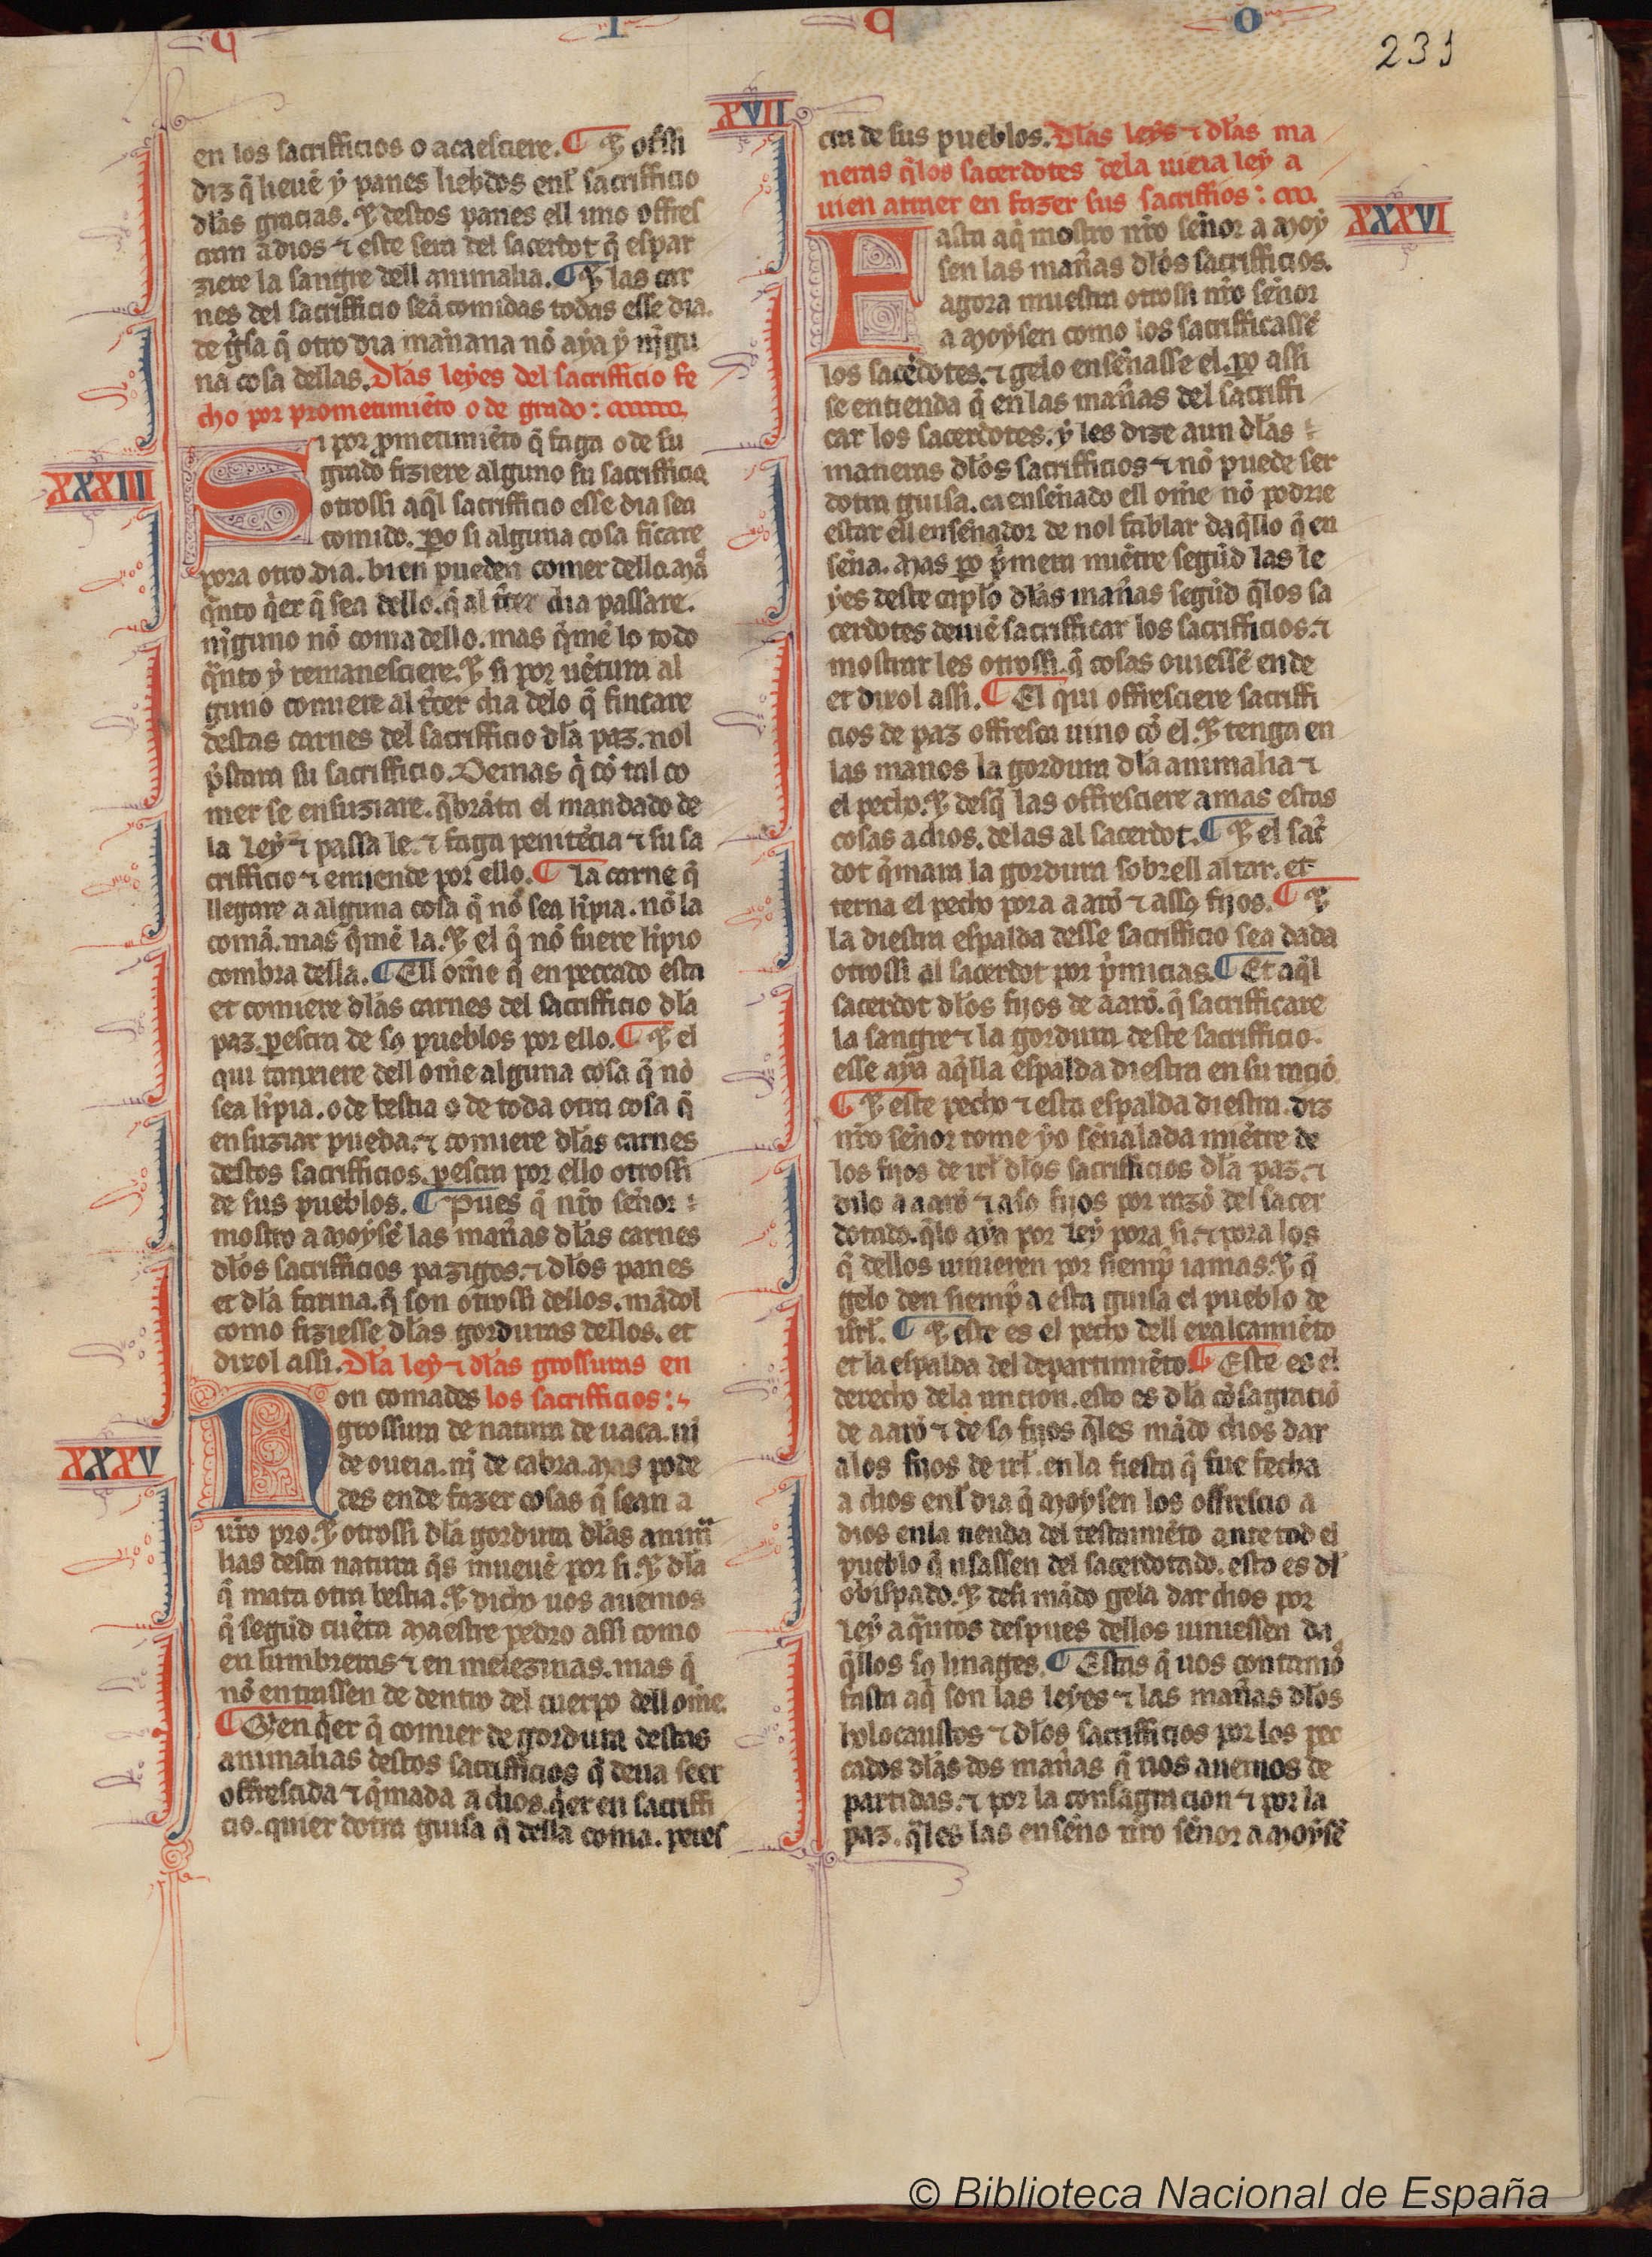 C I C O
231
XVII
en los sacrifficios o acaesciere. ¶ ⁊ ossi
diz q̃ lieuẽ ẏ panes liebdos enl̃ sacrifficio
dl̃as gracias. ⁊ destos panes ell uno offres
cran a dios ⁊ este sera del sacerdot q̃ espar
ziere la sangre dell animalia. ¶ ⁊ las car
nes del sacrifficio seã comidas todas esse dia.
de g̃sa q̃ otro dia mañana nõ aya ẏ nĩgu
na cosa dellas. Dl̃as leẏes del sacrifficio fe
cho por prometimiẽto o de grado:
XXXIIII
Si por ꝓmetimiẽto q̃ faga o de su
grado fiziere alguno su sacrifficio.
otrossi aq̃l sacrifficio esse dia sea
comido. ꝑo si alguna cosa ficare
pora otro dia. bien pueden comer dello. Mas
q̃nto q̃er q̃ sea dello. q̃ al t̃cer dia passare.
nĩguno nõ coma dello. mas q̃mẽ lo todo
q̃nto ẏ remanesciere. ⁊ si por uẽtura al
guno comiere al t̃cer dia delo q̃ fincare
destas carnes del sacrifficio dl̃a paz. nol
p̃stara su sacrifficio. Demas q̃ cõ tal co
mer se ensuziare. q̃brãta el mandado de
la leẏ ⁊ passa le. ⁊ faga penitẽcia ⁊ su sa
crifficio ⁊ emiende por ello. ¶ La carne q̃
llegare a alguna cosa q̃ nõ sea lĩpia. nõ la
comã. mas q̃mẽ la. ⁊ el q̃ nõ fuere lĩpio
combra della. ¶ Ell om̃e q̃ en peccado esta
et comiere dl̃as carnes del sacrifficio dl̃a
paz. ꝑescra de sos pueblos por ello. ¶ ⁊ el
qui tanxiere dell om̃e alguna cosa q̃ nõ
sea lĩpia. o de bestia o de toda otra cosa q̃
ensuziar pueda. ⁊ comiere dl̃as carnes
destos sacrifficios. ꝑescra por ello otrossi
de sus pueblos. ¶ Pues q̃ nr̃o señor
mostro a Moẏsẽ las mañas dl̃as carnes
dl̃os sacrifficios pazigos. ⁊ dl̃os panes
et dl̃a farina. q̃ son otrossi dellos. mãdol
como fiziesse dl̃as gorduras dellos. et
dixol assi. Dl̃a leẏ ⁊ dl̃as grossuras en
los sacrifficios:
XXXV
Non comades
grossura de natura de uaca. nĩ
de oueia. nĩ de cabra. Mas pode
des ende fazer cosas q̃ sean a
ur̃o pro. ⁊ otrossi dl̃a gordura dl̃as anima
lias desta natura q̃s mueuẽ por si. ⁊ dl̃a
q̃ mata otra bestia. ⁊ dicho uos auemos
q̃ segũd cuẽta Maestre pedro assi como
en lumbreras ⁊ en melezinas. mas q̃
nõ entrassen de dentro del cuerpo dell om̃e.
¶ Q̃en q̃er q̃ comier de gordura destas
animalias destos sacrifficios q̃ deua seer
offrescida ⁊ q̃mada a dios. q̃er en sacriffi
cio. quier dotra guisa q̃ della coma. peres
cra de sus pueblos. Dl̃as leẏs ⁊ dl̃as ma
neras q̃los sacerdotes dela uieia leẏ a
uien atener en fazer sus sacriffios:
XXXVI
Fasta aq̃ mostro nr̃o señor a Moẏ
sen las mañas dl̃os sacrifficios.
agora muestra otrossi nr̃o señor
a Moẏsen como los sacrifficassẽ
los sacẽdotes. ⁊ gelo enseñasse el. ꝑo assi
se entienda q̃ en las mañas del sacriffi
car los sacerdotes. ẏ les dize aun dl̃as
maneras dl̃os sacrifficios ⁊ nõ puede ser
dotra guisa. ca enseñado ell om̃e nõ podrie
estar ell enseñador de nol fablar daq̃llo q̃ en
seña. Mas ꝑo p̃mera miẽtre segũd las le
ẏes deste cap̃lo dl̃as mañas segũd q̃los sa
cerdotes deuiẽ sacrifficar los sacrifficios. ⁊
mostrar les otrossi. q̃ cosas ouiessẽ ende
et dixol assi. ¶ El qui offresciere sacriffi
cios de paz offresca uino cõ el. ⁊ tenga en
las manos la gordura dl̃a animalia ⁊
el pecho. ⁊ desq̃ las offresciere amas estas
cosas a dios. delas al sacerdot. ¶ ⁊ el sac̃r
dot q̃mara la gordura sobrell altar. et
terna el pecho pora aarõ ⁊ a sos fijos. ¶ ⁊
la diestra espalda desse sacrifficio sea dada
otrossi al sacerdot por p̃micias. ¶ Et aq̃l
sacerdot dl̃os fijos de aarõ. q̃ sacrifficare
la sangre ⁊ la gordura deste sacrifficio.
esse aẏa aq̃lla espalda diestra en su raciõ.
¶ ⁊ este pecho ⁊ esta espalda diestra. diz
nr̃o señor tome ẏo señalada miẽtre de
los fijos de isrl̃ dl̃os sacrifficios dl̃a paz. ⁊
dilo a aarõ ⁊ a sos fijos por razõ del sacer
dotado. q̃lo aẏa por leẏ pora si. ⁊ pora los
q̃ dellos uinieren por siemp̃ iamas. ⁊ q̃
gelo den siemp̃ a esta guisa el pueblo de
isrl̃. ¶ ⁊ este es el pecho dell exalçamiẽto
et la espalda del departimiẽto. ¶ Este es el
derecho dela uncion. esto es dl̃a cõsagraciõ
de aarõ ⁊ de sos fijos q̃les mãdo dios dar
a los fijos de isrl̃. en la fiesta q̃ fue fecha
a dios enl̃ dia q̃ Moẏsen los offrescio a
dios en la tienda del testamiẽto ante tod el
pueblo q̃ usassen del sacerdotado. esto es dl̃
obispado. ⁊ desi mãdo gela dar dios por
leẏ a q̃ntos despues dellos uiniessen da
q̃llos sos linages. ¶ Estas q̃ uos contamos
fasta aq̃ son las leẏes ⁊ las mañas dl̃os
holocaustos ⁊ dl̃os sacrifficios por los pec
cados dl̃as dos mañas q̃ nos auemos de
partidas. ⁊ por la consagracion ⁊ por la
paz. q̃les las enseño nr̃o señor a Moẏsẽ
© Biblioteca Nacional de España